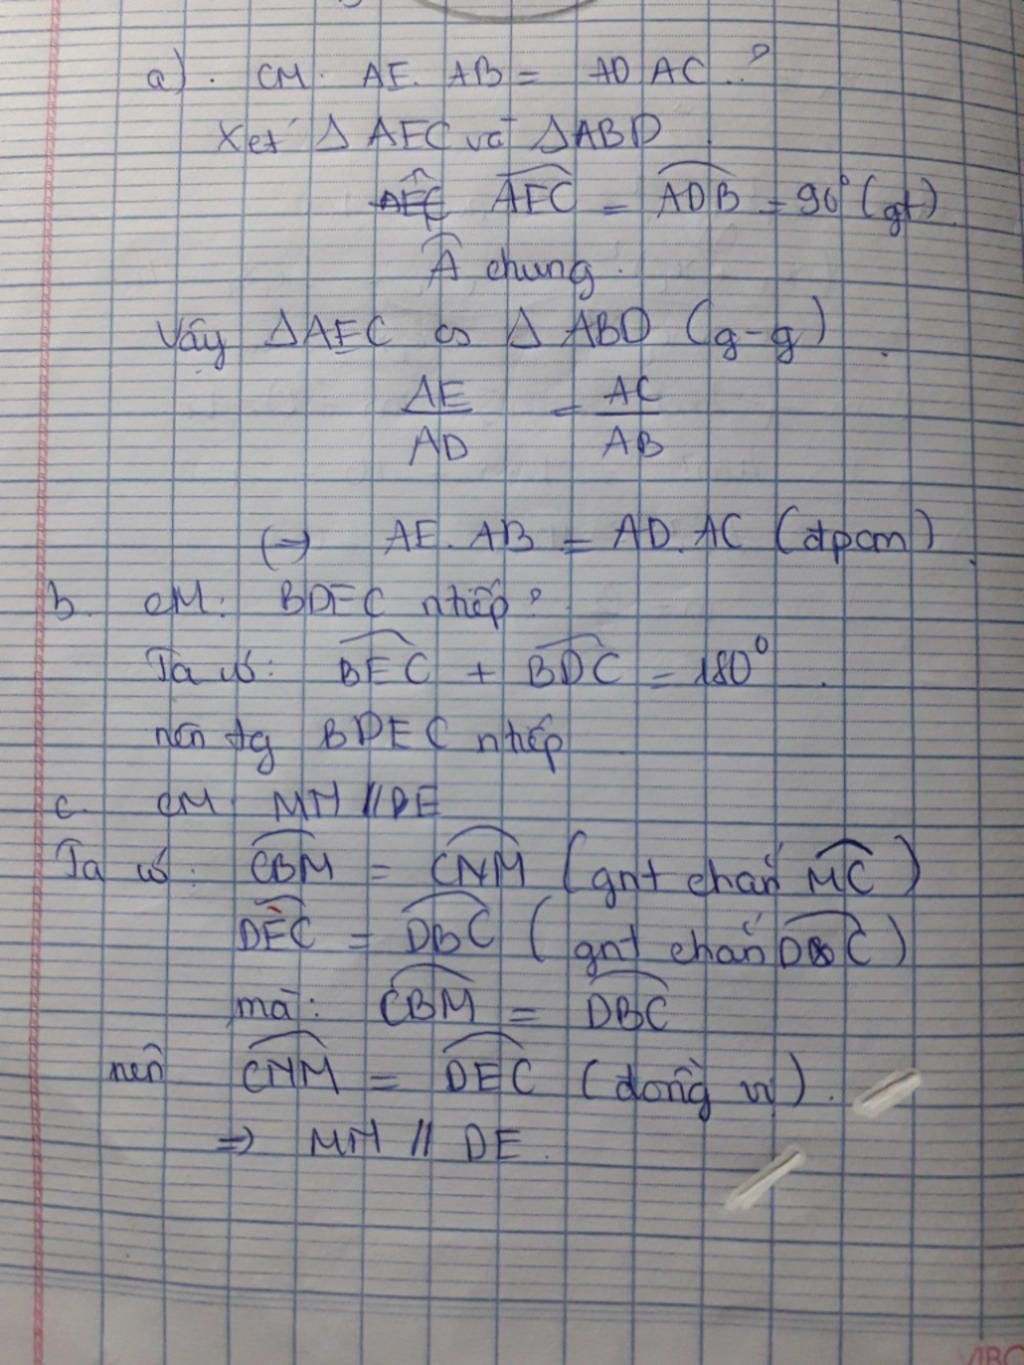 a) . CM. AE. AB = AD AC ..?
Xét Δ AEC và ΔABD
AEC AEC = ADB = 90° (gt)
Â chung.
Vậy ΔAEC ∽ Δ ABD (g-g).
AE/AD = AC/AB
(=) AE. AB = AD. AC (đpcm)
b. CM: BDEC ntiếp?
Ta có: BEC + BDC = 180°.
nên tg BDEC ntiếp
c. CM MN // DE
Ta có: CBM = CNM (gnt chắn MC)
DEC = DBC (gnt chắn DC)
mà: CBM = DBC
nên CNM = DEC (đồng vị).
=> MN // DE.